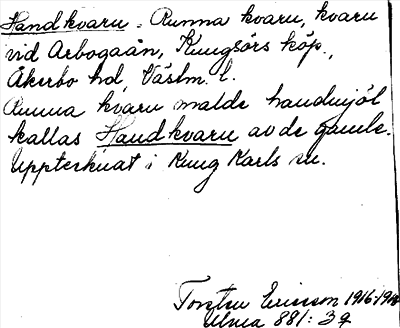 Handkvarn. Runna kvarn, kvarn
vid Arbogaån, Kungsörs köp.,
Åkerbo hd, Västm. l.
Runna kvarn malde handmjöl
kallas Handkvarn av de gamle.
Upptecknat i Kung Karls sn.
Torsten Ericsson 1916-1918
Ulma 881:3